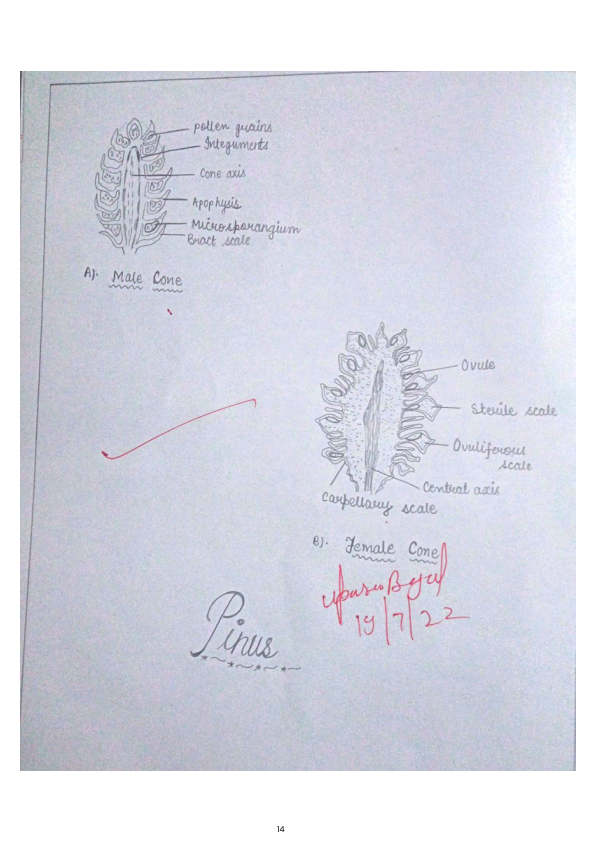 pollen grains
Integuments
Cone axis
Apophysis
Microsporangium
Bract scale
A). Male Cone
Ovule
Sterile scale
Ovuliferous
scale
Central axis
Carpellary scale
B). Female Cone
19/7/22
Pinus
14